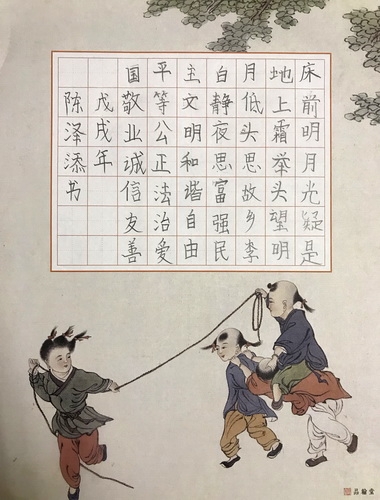 床前明月光疑是
地上霜举头望明
月低头思故乡李
白静夜思富强民
主文明和谐自由
平等公正法治爱
国敬业诚信友善
戊戌年
陈泽添书
品翰堂